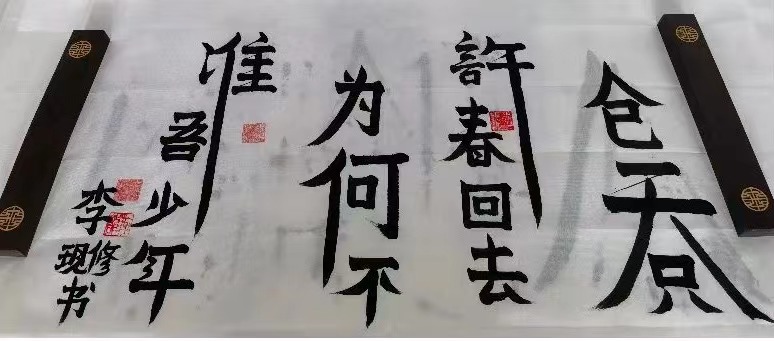 仓天只
許春回去
为何不
准吾少年
李修现书